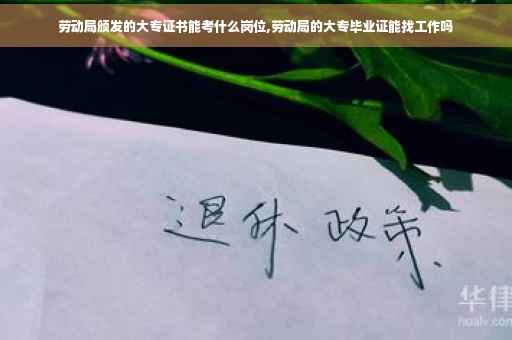 劳动局颁发的大专证书能考什么岗位,劳动局的大专毕业证能找工作吗
退休 政策
华律
hualv.com